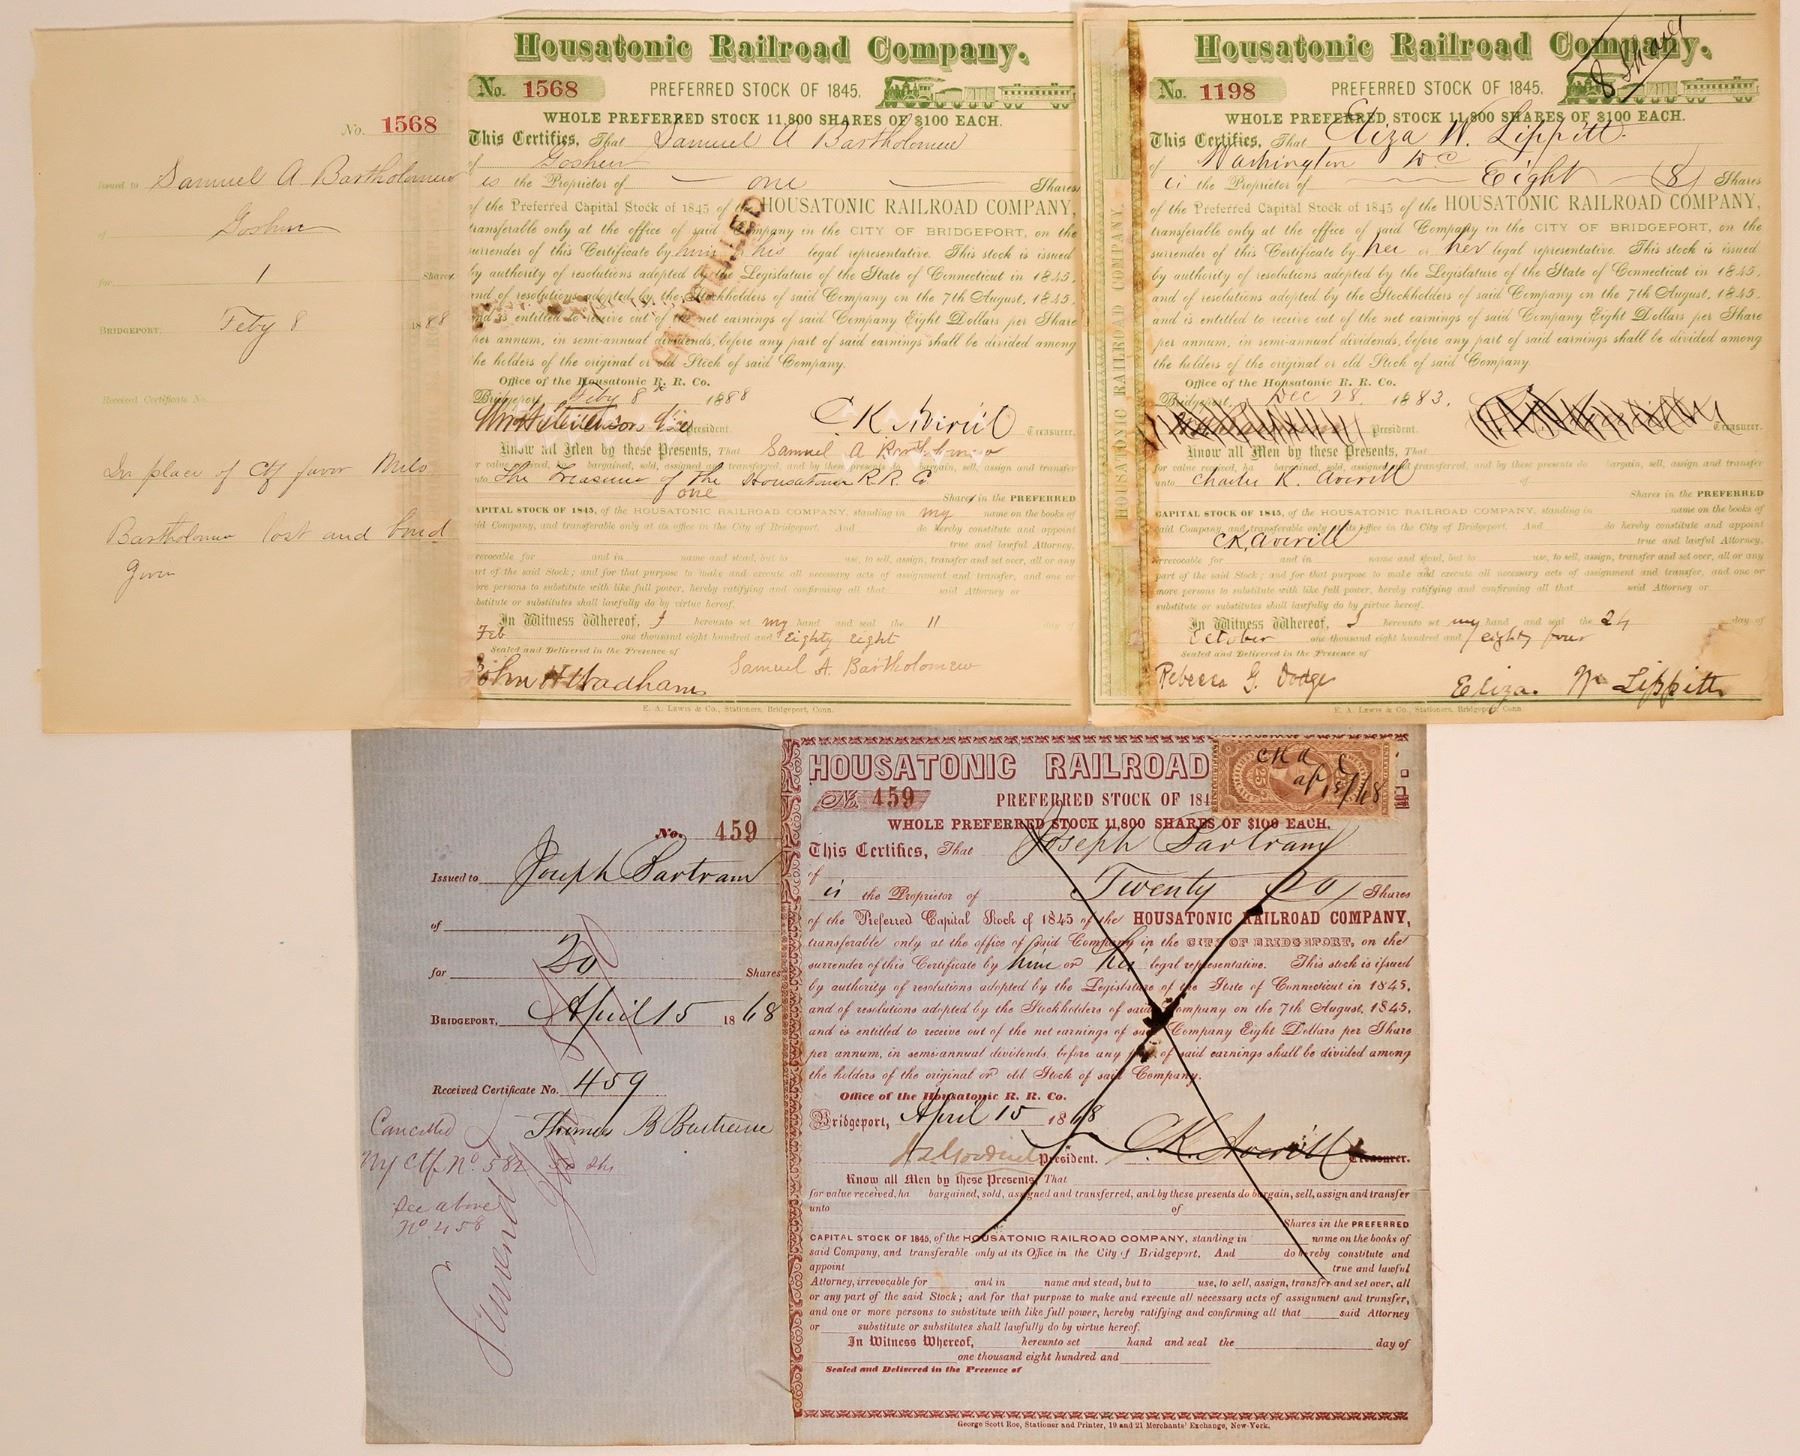 No. 1568
Issued to Samuel A Bartholomew
of Goshen
for 1 Shares
BRIDGEPORT, Feby 8 1888
Received Certificate No.
In place of Ctf favor Milo
Bartholomew lost and bond
given
Housatonic Railroad Company.
No. 1568 PREFERRED STOCK OF 1845.
WHOLE PREFERRED STOCK 11,800 SHARES OF $100 EACH.
This Certifies, That Samuel A Bartholomew
of Goshen
is the Proprietor of one Shares
of the Preferred Capital Stock of 1845 of the HOUSATONIC RAILROAD COMPANY,
transferable only at the office of said Company in the CITY OF BRIDGEPORT, on the
surrender of this Certificate by him or his legal representative. This stock is issued
by authority of resolutions adopted by the Legislature of the State of Connecticut in 1845,
and of resolutions adopted by the Stockholders of said Company on the 7th August, 1845,
and is entitled to receive out of the net earnings of said Company Eight Dollars per Share
per annum, in semi-annual dividends, before any part of said earnings shall be divided among
the holders of the original or old Stock of said Company.
CANCELLED
Office of the Housatonic R. R. Co.
Bridgeport, Feby 8th 1888
Wm H Stevenson Vice President. C K Averill Treasurer.
Know all Men by these Presents, That Samuel A Bartholomew
for value received, ha bargained, sold, assigned and transferred, and by these presents do bargain, sell, assign and transfer
unto The Treasurer of the Housatonic R.R. Co
one Shares in the PREFERRED
CAPITAL STOCK OF 1845, of the HOUSATONIC RAILROAD COMPANY, standing in my name on the books of
said Company, and transferable only at its office in the City of Bridgeport. And do hereby constitute and appoint
true and lawful Attorney,
irrevocable for and in name and stead, but to use, to sell, assign, transfer and set over, all or any
part of the said Stock; and for that purpose to make and execute all necessary acts of assignment and transfer, and one or
more persons to substitute with like full power, hereby ratifying and confirming all that said Attorney or
substitute or substitutes shall lawfully do by virtue hereof.
In Witness Whereof, I hereunto set my hand and seal the 11 day of
Feb one thousand eight hundred and Eighty eight
Sealed and Delivered in the Presence of
John H Wadhams Samuel A. Bartholomew
E. A. Lewis & Co., Stationers, Bridgeport, Conn.
HOUSATONIC RAILROAD COMPANY.
Housatonic Railroad Company.
8 Shares
No. 1198 PREFERRED STOCK OF 1845.
WHOLE PREFERRED STOCK 11,800 SHARES OF $100 EACH.
This Certifies, That Eliza W. Lippitt
of Washington DC
is the Proprietor of Eight (8) Shares
of the Preferred Capital Stock of 1845 of the HOUSATONIC RAILROAD COMPANY,
transferable only at the office of said Company in the CITY OF BRIDGEPORT, on the
surrender of this Certificate by her or her legal representative. This stock is issued
by authority of resolutions adopted by the Legislature of the State of Connecticut in 1845,
and of resolutions adopted by the Stockholders of said Company on the 7th August, 1845,
and is entitled to receive out of the net earnings of said Company Eight Dollars per Share
per annum, in semi-annual dividends, before any part of said earnings shall be divided among
the holders of the original or old Stock of said Company.
Office of the Housatonic R. R. Co.
Bridgeport, Dec 28. 1883.
President. Treasurer.
Know all Men by these Presents, That
for value received, ha bargained, sold, assigned and transferred, and by these presents do bargain, sell, assign and transfer
unto Charles K. Averill of
Shares in the PREFERRED
CAPITAL STOCK OF 1845, of the HOUSATONIC RAILROAD COMPANY, standing in name on the books of
said Company, and transferable only at its office in the City of Bridgeport. And do hereby constitute and appoint
CK Averill true and lawful Attorney,
irrevocable for and in name and stead, but to use, to sell, assign, transfer and set over, all or any
part of the said Stock; and for that purpose to make and execute all necessary acts of assignment and transfer, and one or
more persons to substitute with like full power, hereby ratifying and confirming all that said Attorney or
substitute or substitutes shall lawfully do by virtue hereof.
In Witness Whereof, I hereunto set my hand and seal the 24 day of
October one thousand eight hundred and eighty four
Sealed and Delivered in the Presence of
Rebecca G. Dodge Eliza. W Lippitt
E. A. Lewis & Co., Stationers, Bridgeport, Conn.
No. 459
Issued to Joseph Bartram
of
for 20 Shares
BRIDGEPORT, April 15 1868
Received Certificate No. 459
Thomas B Bartram
Cancelled
Ny Ctf No. 582 50 shs
See above
No 458
HOUSATONIC RAILROAD
25
CKA
ap 15/68
No. 459 PREFERRED STOCK OF 184
WHOLE PREFERRED STOCK 11,800 SHARES OF $100 EACH.
This Certifies, That Joseph Bartram
of
is the Proprietor of Twenty (20) Shares
of the Preferred Capital Stock of 1845 of the HOUSATONIC RAILROAD COMPANY,
transferable only at the office of said Company in the CITY OF BRIDGEPORT, on the
surrender of this Certificate by him or his legal representative. This stock is issued
by authority of resolutions adopted by the Legislature of the State of Connecticut in 1845,
and of resolutions adopted by the Stockholders of said Company on the 7th August, 1845,
and is entitled to receive out of the net earnings of said Company Eight Dollars per Share
per annum, in semi-annual dividends, before any part of said earnings shall be divided among
the holders of the original or old Stock of said Company.
Office of the Housatonic R. R. Co.
Bridgeport, April 15 1868
President. C.K. Averill Treasurer.
Know all Men by these Presents, That
for value received, ha bargained, sold, assigned and transferred, and by these presents do bargain, sell, assign and transfer
unto of
Shares in the PREFERRED
CAPITAL STOCK OF 1845, of the HOUSATONIC RAILROAD COMPANY, standing in name on the books of
said Company, and transferable only at its Office in the City of Bridgeport. And do hereby constitute and
appoint true and lawful
Attorney, irrevocable for and in name and stead, but to use, to sell, assign, transfer and set over, all
or any part of the said Stock; and for that purpose to make and execute all necessary acts of assignment and transfer,
and one or more persons to substitute with like full power, hereby ratifying and confirming all that said Attorney
or substitute or substitutes shall lawfully do by virtue hereof.
In Witness Whereof, hereunto set hand and seal the day of
one thousand eight hundred and
Sealed and Delivered in the Presence of
George Scott Roe, Stationer and Printer, 19 and 21 Merchants' Exchange, New-York.